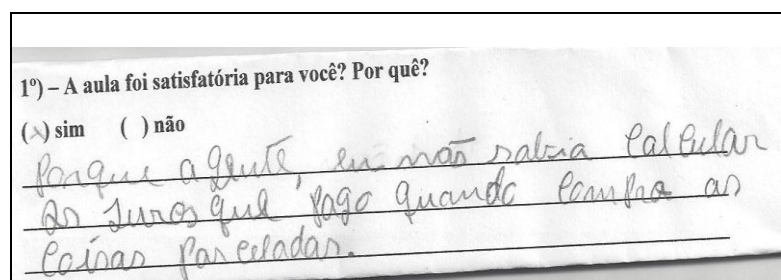 1º) – A aula foi satisfatória para você? Por quê?
(x) sim ( ) não
Porque a gente, eu não sabia calcular
os juros que pago quando compra as
coisas parceladas.